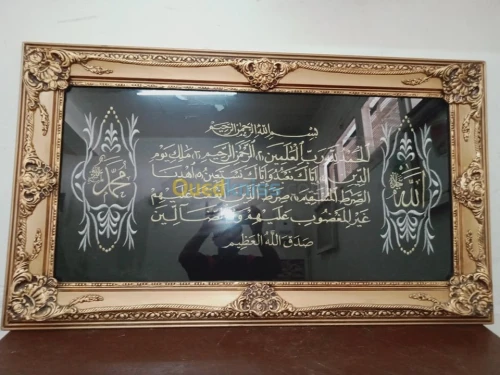 بسم الله الرحمن الرحيم
الله
الحمد لله رب العلمين الرحمن الرحيم ملك يوم
الدين اياك نعبد واياك نستعين اهدنا
الصرط المستقيم صرط الذين انعمت عليهم
غير المغضوب عليهم ولا الضالين
صدق الله العظيم
محمد